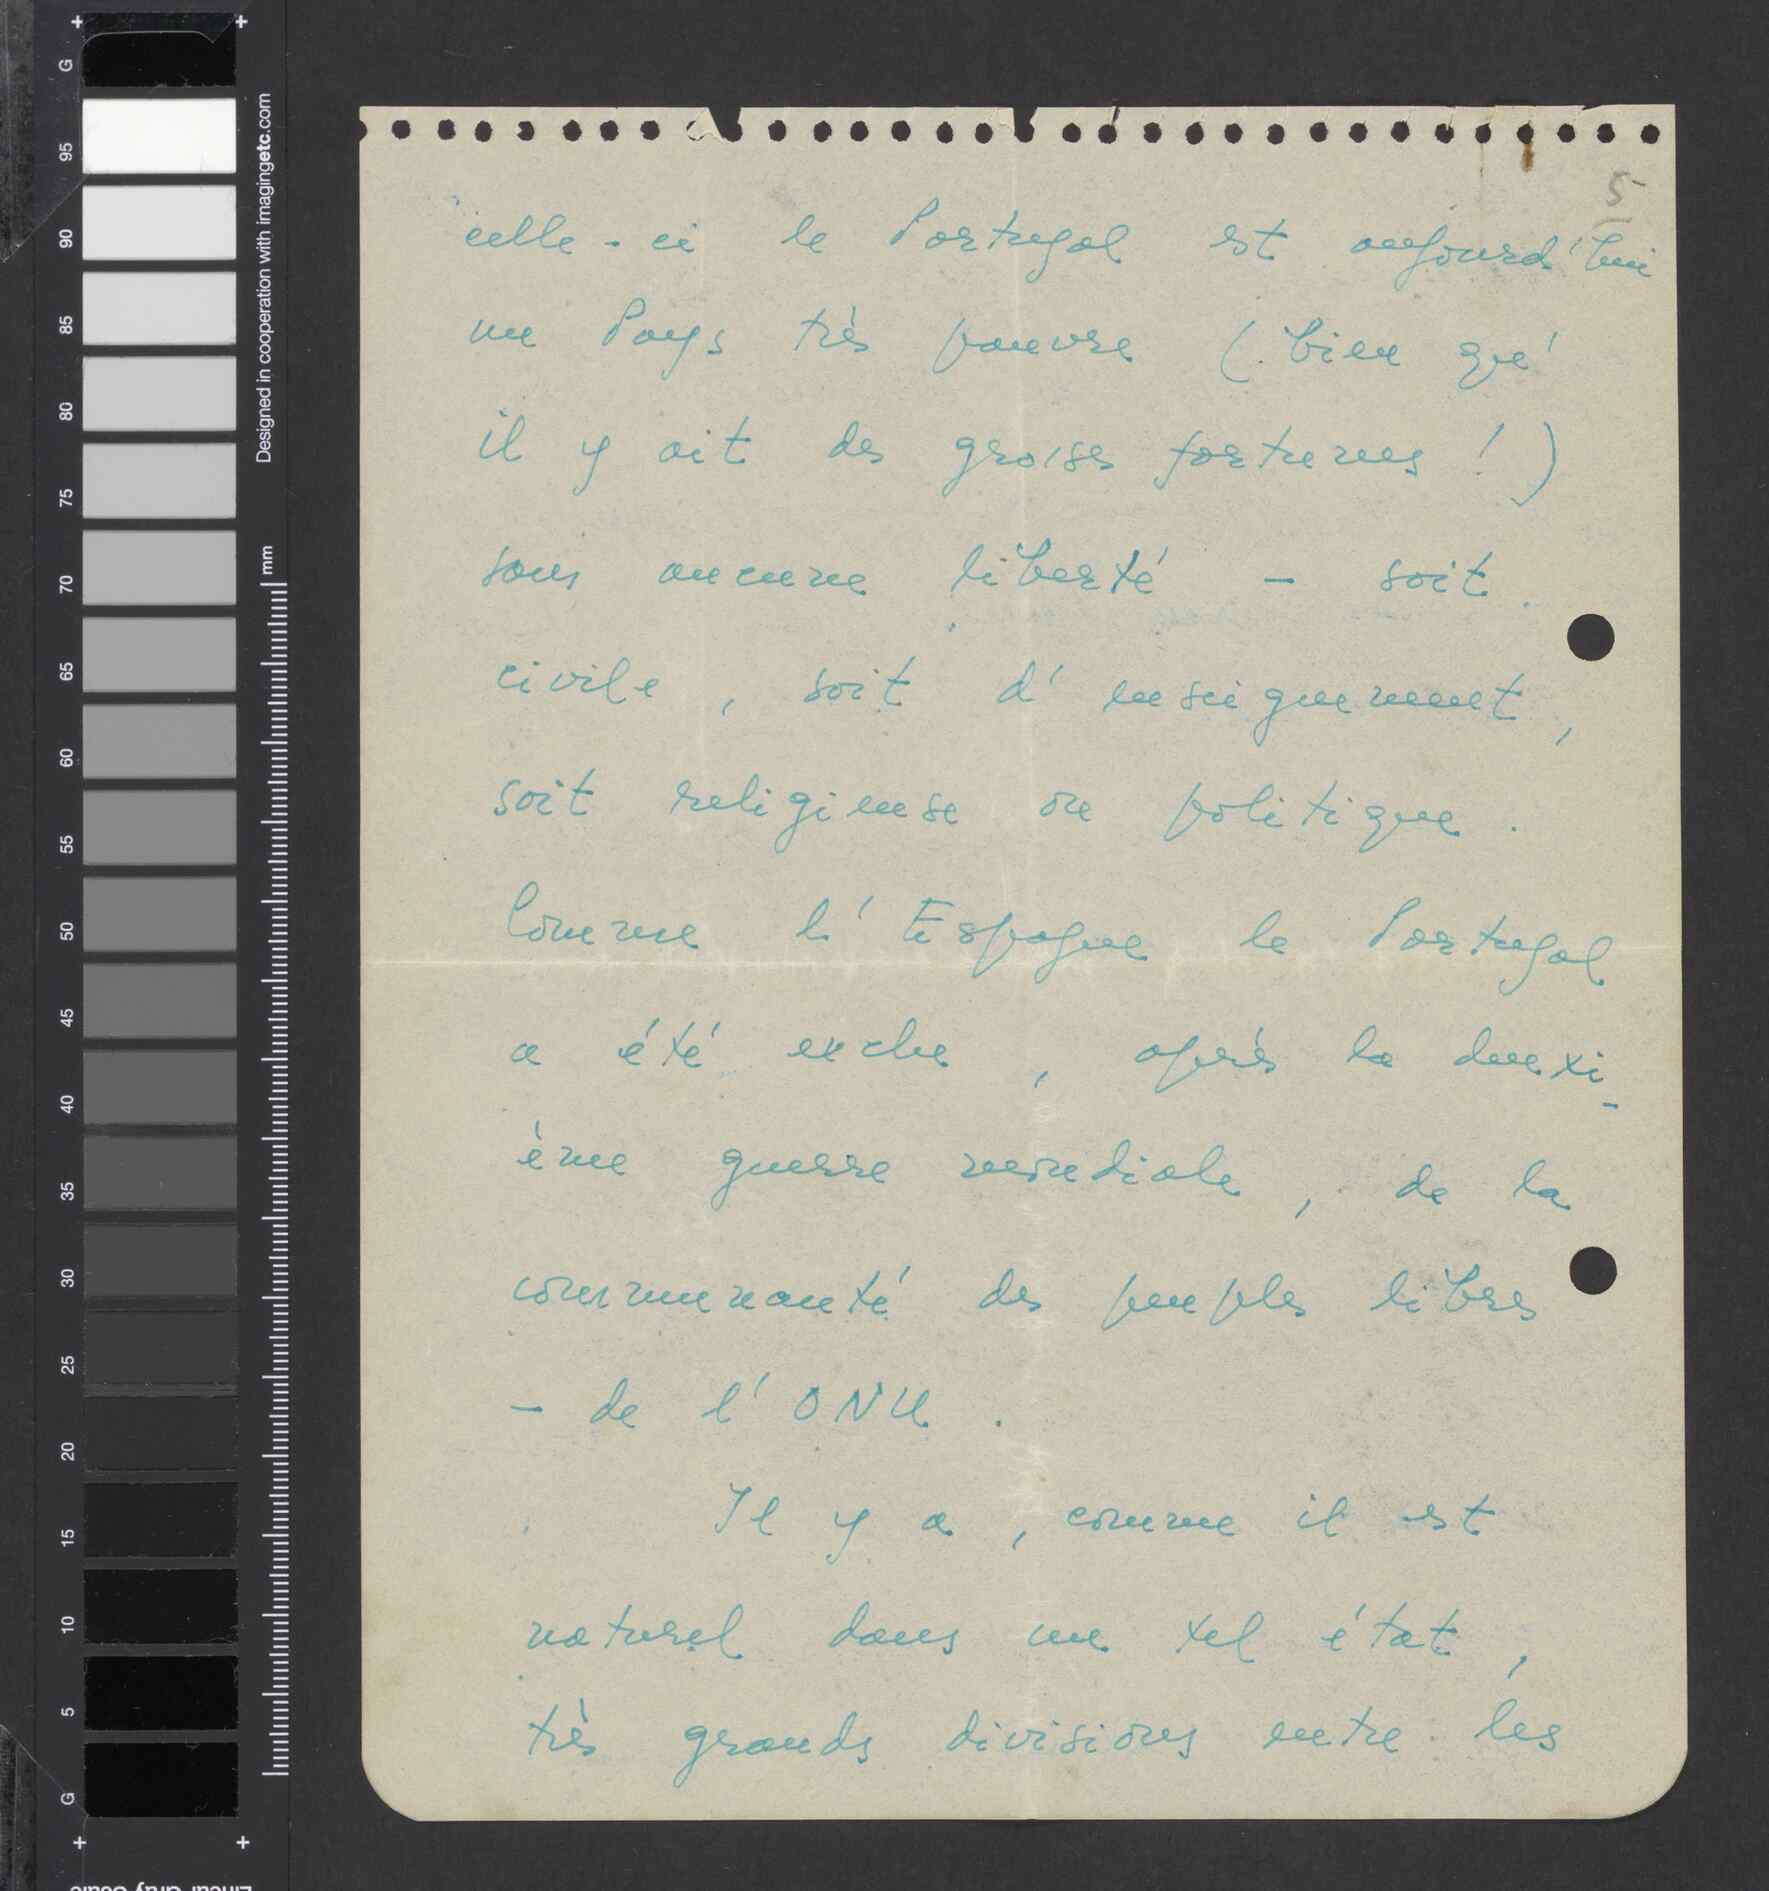 5
celle-ci le Portugal est aujourd'hui
un Pays très pauvre (bien qu'
il y ait des grosses fortunes !)
sans aucune liberté - soit
civile, soit d'enseignement,
soit religieuse ou politique.
Comme l'Espagne le Portugal
a été exclu, après la deuxi-
ème guerre mondiale, de la
communauté des peuples libres
- de l'ONU.
Il y a, comme il est
naturel dans un tel état,
très grands divisions entre les
Designed in cooperation with imagingetc.com
mm
G
95
90
85
80
75
70
65
60
55
50
45
40
35
30
25
20
15
10
5
G